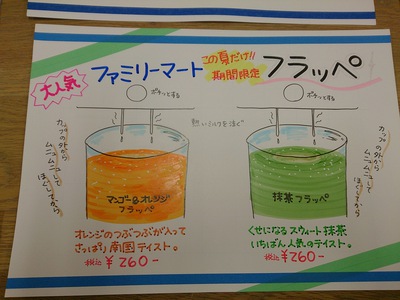 大人気
ファミリーマート
この夏だけ!!
期間限定
フラッペ
ポチッとする
ポチッとする
熱いミルクを注ぐ
カップの外から
ムニュムニュして
ほぐしてから
カップの外から
ムニュムニュして
ほぐしてから
マンゴー&オレンジ
フラッペ
抹茶フラッペ
オレンジのつぶつぶが入って
さっぱり南国テイスト。
税込¥260-
くせになるスウィート抹茶
いちばん人気のテイスト。
税込¥260-